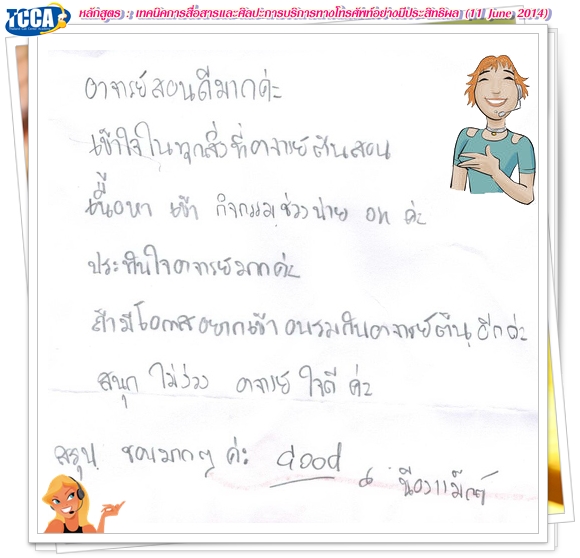 TCCA หลักสูตร : เทคนิคการสื่อสารและศิลปะการบริการทางโทรศัพท์อย่างมีประสิทธิผล (11 June 2014)
อาจารย์สอนดีมากค่ะ
เข้าใจในทุกสิ่งที่อาจารย์ตันสอน
เนื้อหา เช้า กิจกรรมช่วงบ่าย OK ค่ะ
ประทับใจอาจารย์มากค่ะ
ถ้ามีโอกาสอยากเข้าอบรมกับอาจารย์ตันอีกค่ะ
สนุก ไม่ง่วง อาจารย์ ใจดี ค่ะ
สรุป ชอบมากๆ ค่ะ Good